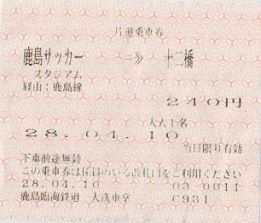 片道乗車券
鹿島サッカー → 十二橋
スタジアム
経由：鹿島線
240円
大人1名
28.04.10 当日限り有効
下車前途無効
この乗車券は係員のいる改札口をご利用ください
28.04.10 03 0011
鹿島臨海鉄道 大洗車堂 C931